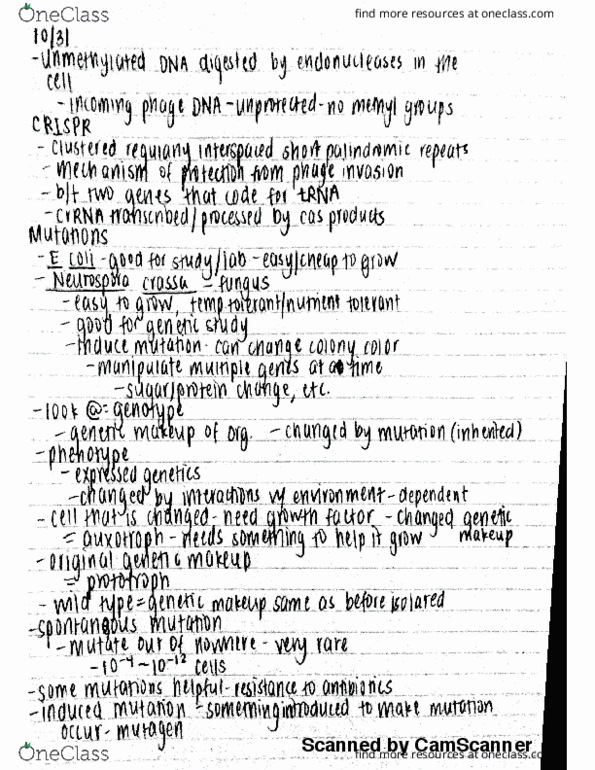 OneClass
find more resources at oneclass.com
10/31
- unmethylated DNA digested by endonucleases in the
cell
- incoming phage DNA - unprotected - no methyl groups
CRISPR
- clustered regularly interspaced short palindromic repeats
- mechanism of protection from phage invasion
- b/t two genes that code for tRNA
- crRNA transcribed/processed by cas products
Mutations
- E coli - good for study/lab - easy/cheap to grow
- Neurospora crassa - fungus
- easy to grow, temp tolerant/nutrient tolerant
- good for genetic study
- induce mutation - can change colony color
- manipulate multiple genes at a time
- sugar/protein change, etc.
- look @ = genotype
- genetic makeup of org. - changed by mutation (inherited)
- phenotype
- expressed genetics
- changed by interactions w/ environment - dependent
- cell that is changed - need growth factor - changed genetic
= auxotroph - needs something to help it grow makeup
- original genetic makeup
= prototroph
- wild type = genetic makeup same as before isolated
- spontaneous mutation
- mutate out of nowhere - very rare
- 10⁻⁴ ~ 10⁻¹² cells
- some mutations helpful - resistance to antibiotics
- induced mutation - something introduced to make mutation
occur - mutagen
OneClass
Scanned by CamScanner
find more resources at oneclass.com